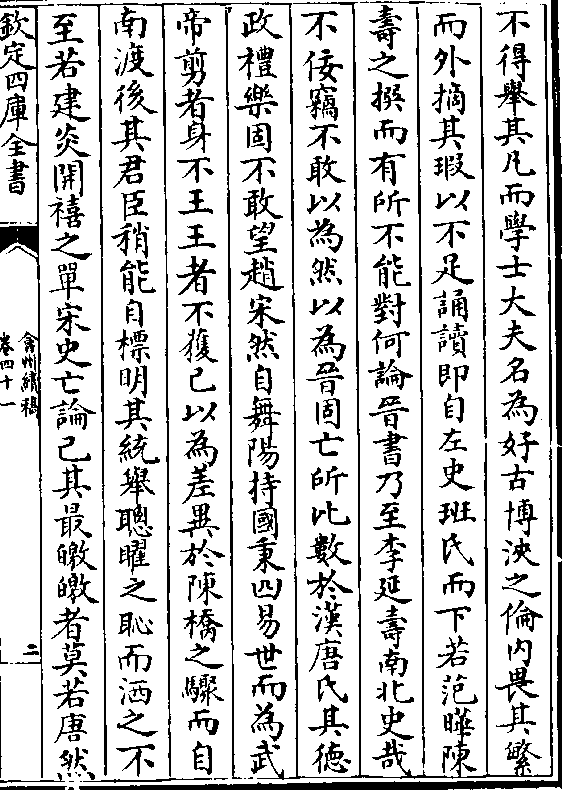 不得舉其凡而學士大夫名為好古博泱之倫内畏其繁
而外摘其瑕以不足誦讀即自左史班氏而下若范曄陳
壽之撰而有所不能對何論晉書乃至李延壽南北史哉
不佞竊不敢以為然以為晉固亡所比數於漢唐氏其德
政禮樂固不敢望趙宋然自舞陽持國秉四易世而為武
帝剪者身不王王者不獲已以為差異於陳橋之驟而自
南渡後其君臣稍能自標明其統舉聰曜之恥而洒之不
至若建炎開禧之單宋史亡論已其最皦皦者莫若唐然
欽定四庫全書
弇州續稿
卷四十一
二